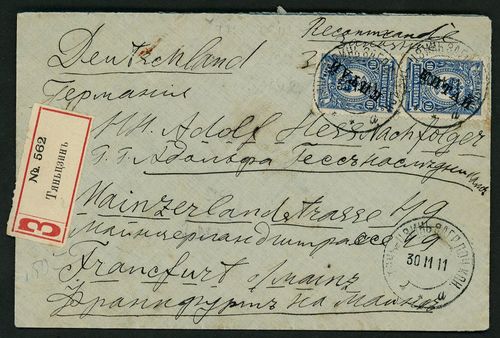 Recommandie
Deutschland
Германія
HH. Adolf Hess Nachfolger
Г.Г. Адольфа Гессъ наслѣдник
Mainzerlandstrasse 49
Майнцерландштрассе 49
Francfurt o/mainz
Франкфуртъ на Майнѣ
№ 562
Тяньцзинъ
З
КИТАЙ
КИТАЙ
10
10
30 11 11
а